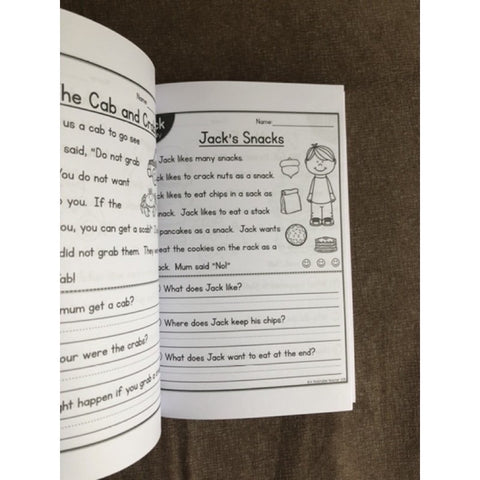 Name:
he Cab and Cr
us a cab to go see
said, "Do not grab
You do not want
you. If the
ou, you can get a scab!
did not grab them. They
ab!
mum get a cab?
our were the crabs?
ght happen if you grab a
Name:
Jack's Snacks
Jack likes many snacks.
ck likes to crack nuts as a snack.
ck likes to eat chips in a sack as
nack. Jack likes to eat a stack
pancakes as a snack. Jack wants
eat the cookies on the rack as a
ck. Mum said "No!"
What does Jack like?
Where does Jack keep his chips?
What does Jack want to eat at the end?